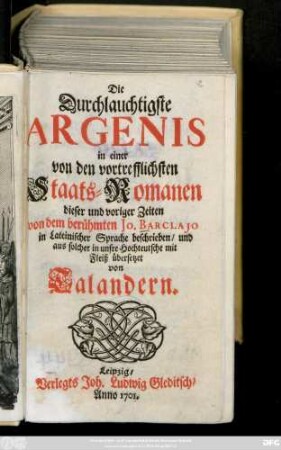 Die
Durchlauchtigste
ARGENIS
in einer
von den vortrefflichsten
Staats-Romanen
dieser und voriger Zeiten
von dem berühmten JO. BARCLAJO
in Lateinischer Sprache beschrieben/ und
aus solcher in unsre Hochteutsche mit
Fleiß übersetzet
von
Talandern.
Leipzig/
Verlegts Joh. Ludwig Gleditsch/
Anno 1701.